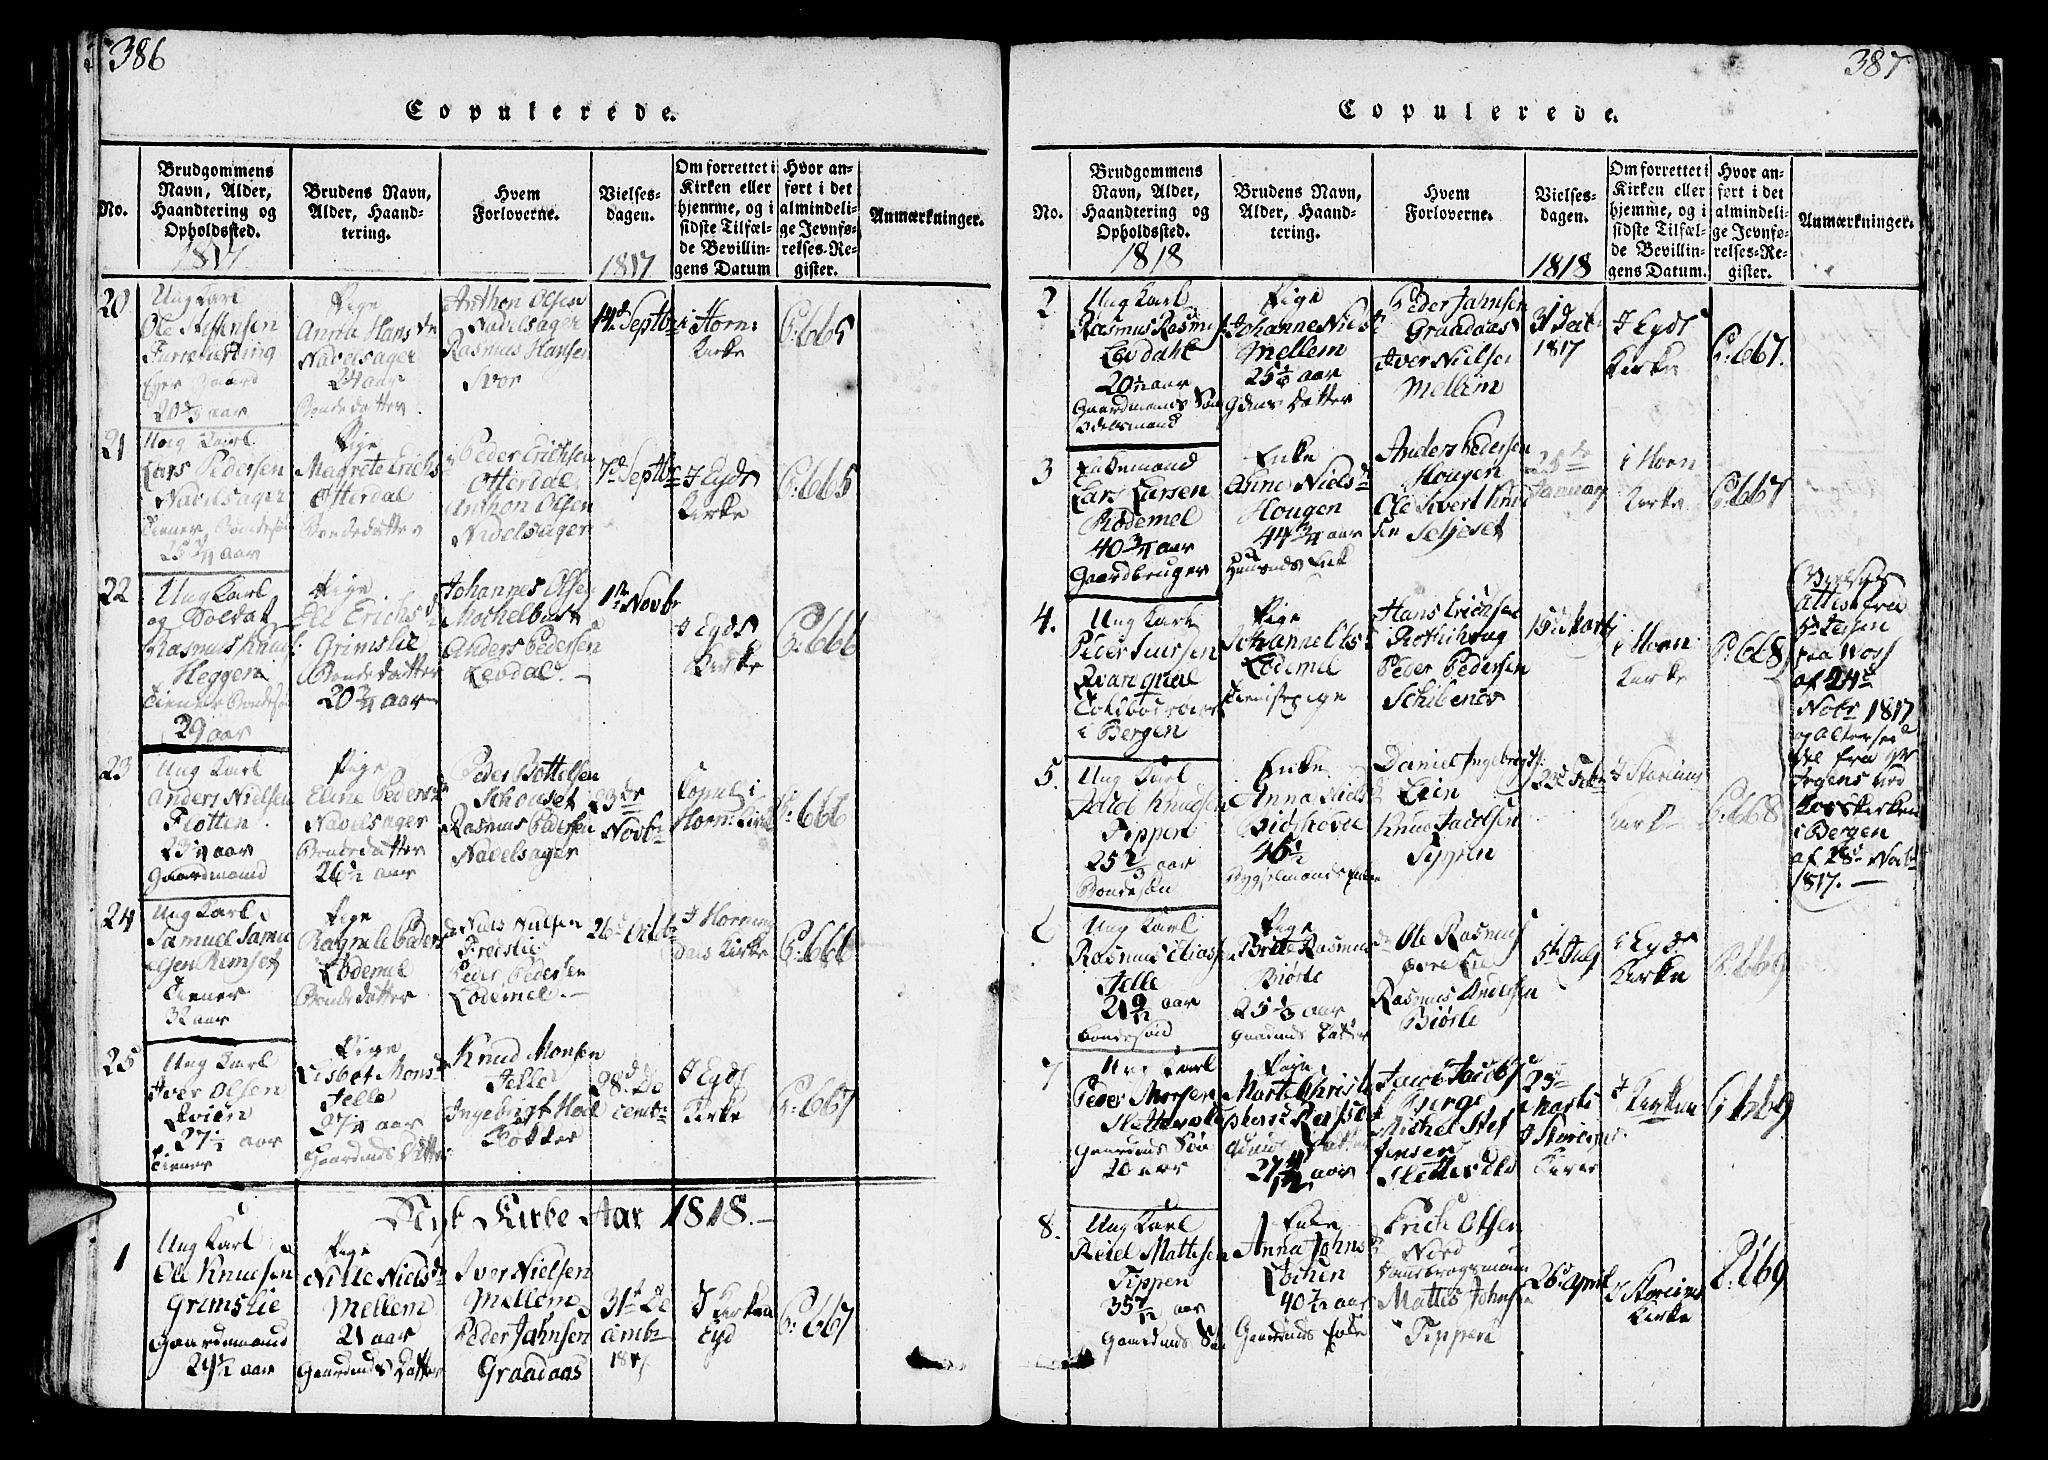 386
Copulerede.
No.
Brudgommens
Navn, Alder,
Haandtering og
Opholdssted.
1817
Brudens Navn,
Alder, Haand-
tering.
Hvem
Forloverne.
Vielses-
dagen.
1817
Om forrettet i
Kirken eller
hjemme, og i
sidste Tilfæl-
de Bevillin-
gens Datum
Hvor an-
ført i det
almindeli-
ge Jevnfø-
relses-Re-
gister.
Anmærkninger.
20
Ung Karl
Ole Steffensen
20 3/4 aar
Pige
Anna Hansdr
Navelsager
24 aar
Bonde datter
Anthon Olsen
Nadelsager
Rasmus Hansen
Svor
14d Septbr
i Horn:
Kirke
P:665
21
Ung Karl
Lars Pedersen
Navelsager
Tiener
Pige
Magrete Erichs
Otterdal
Bondedatter
Peder Erichsen
Otterdal
Anthon Olsen
Nadelsager
7d Septbr
I Eyds
Kirke
P:665
22
Ung Karl
og Soldat
Rasmus Knuds:
Heggen
Tiener
29 aar
Pige
Erichsd
Grimslie
Bonde datter
20 3/4 aar
Johannes Olsen
Mochelbust
Anders Pedersen
Levdal. -
1te Novbr
I Eyds
Kirke
P:666
23
Ung Karl
Anders Nielsen
Flotten
Gaardmand
Pige
Eline Pedersdr
Navelsager
Bondedatter
26 1/2 aar
Peder Bottelsen
Schouset
Rasmus Pedersen
Navelsager
23de
Novbr
Copul: i
Horn: Kirke
P:666
24
Ung Karl
Samuel Samu
elsen Remset
Tiener
32 aar
Pige
Ragnele Peders
Lødemel
Bondedatter
Niels Nielsen
Frøeslie
Peder Pedersen
Lødemel. -
26d Octbr
I Hornin
dals Kirke
P:666
25
Ung Karl
Iver Olsen
Løien
27 1/2 aar
Tiener
Pige
Lisbet Monsd
Jelle
27 1/4 aar
Gaardmds Datter
Knud Monsen
Jelle
Ingebrigt
28d De
cembr
I Eyds
Kirke
P:667
Nyt Kirke Aar 1818. -
1
Ung Karl
Ole Knudsen
Grimslie
Gaardmand
24 1/2 aar
Pige
Nille Nielsdr
Mellem
21 aar
Gaardmds Datter
Iver Nielsen
Mellem
Peder Jahnsen
Graadaas
31t De
cembr
1817
I Kirken
Eyd
P:667
387
Copulerede.
No.
Brudgommens
Navn, Alder,
Haandtering og
Opholdssted.
1818
Brudens Navn,
Alder, Haand-
tering.
Hvem
Forloverne.
Vielses-
dagen.
1818
Om forrettet i
Kirken eller
hjemme, og i
sidste Tilfæl-
de Bevillin-
gens Datum.
Hvor an-
ført i det
almindeli-
ge Jevnfø-
relses-Re-
gister.
Anmærkninger.
2
Ung Karl
Rasmus Rasmus
Levdahl
20 1/2 aar
Gaardmands Søn
Odelsmand
Pige
Johanne Niels
Mellem
25 1/6 aar
Gdms Datter
Peder Jahnsen
Graadaas
Iver Nielsen
Mellem
31 Decb
1817
I Eyds
Kirke
P:667.
3
Enkemand
Lars Larsen
Rødemel
40 3/4 aar
Gaardbruger
Enke
Anne Nielsd
Hougen
44 3/4 aar
Huusmds Enke
Anders Pedersen
Hougen
Ole Sivert Knu
sen Seljeset
25de
Januar
i Horn
Kirke
P:667
4.
Ung Karl
Peder Iversen
Toldbodroer
i Bergen
Pige
Johanne Ols
Lødemel
Tienistepige
Hans Erichsen
Rothihoug
Peder Pedersen
Schibenes
15d Marts
i Horn
Kirke
P:668
Attest fra
Hr
fra Woss
af 24d
Nobr 1817
og
fra Hr
Jrgens ved
Korskirken
i Bergen
af 28d Novbr
1817. -
5.
Ung Karl
Knudsen
Tippen
25 2/3 aar
Bondesøn
Enke
Anna Nielsd
46 1/2
Daniel Ingebrigts:
Leen
Knud Jacobsen
22d Febr
I Starims
Kirke
P:668
6
Ung Karl
Rasmus Eliass
Jelle
21 9/12 aar
Bondesøn
Pige
Brite Rasmus
Biørlo
25 1/3 aar
Gaardmds Datter
Ole Rasmus
Øvre Lie
Rasmus Andersen
Biørlo
5d July
i Eyds
Kirke
P:669
7
Ung Karl
Peder Morsen
Slettevold
Gaardmds Søn
20 aar
Pige
Marte Christo
phersd
27 4/12 aar
Jacob Jacobs
Berge
Michel Stef
fensen
Slettevold
25d
Marts
I Starims
Kirke
I Kirken
P:669
8.
Ung Karl
Reiel Mattisen
Tippen
35 7/12 aar
Gaardmds Søn
Enke
Anna Johns
Lochen
40 7/12 aar
Gaardmds Enke
Erich Olsen
Nord
Dannebrogsmand
Mattis Johnsen
Tippen
26d April
I Starims
Kirke
P:669